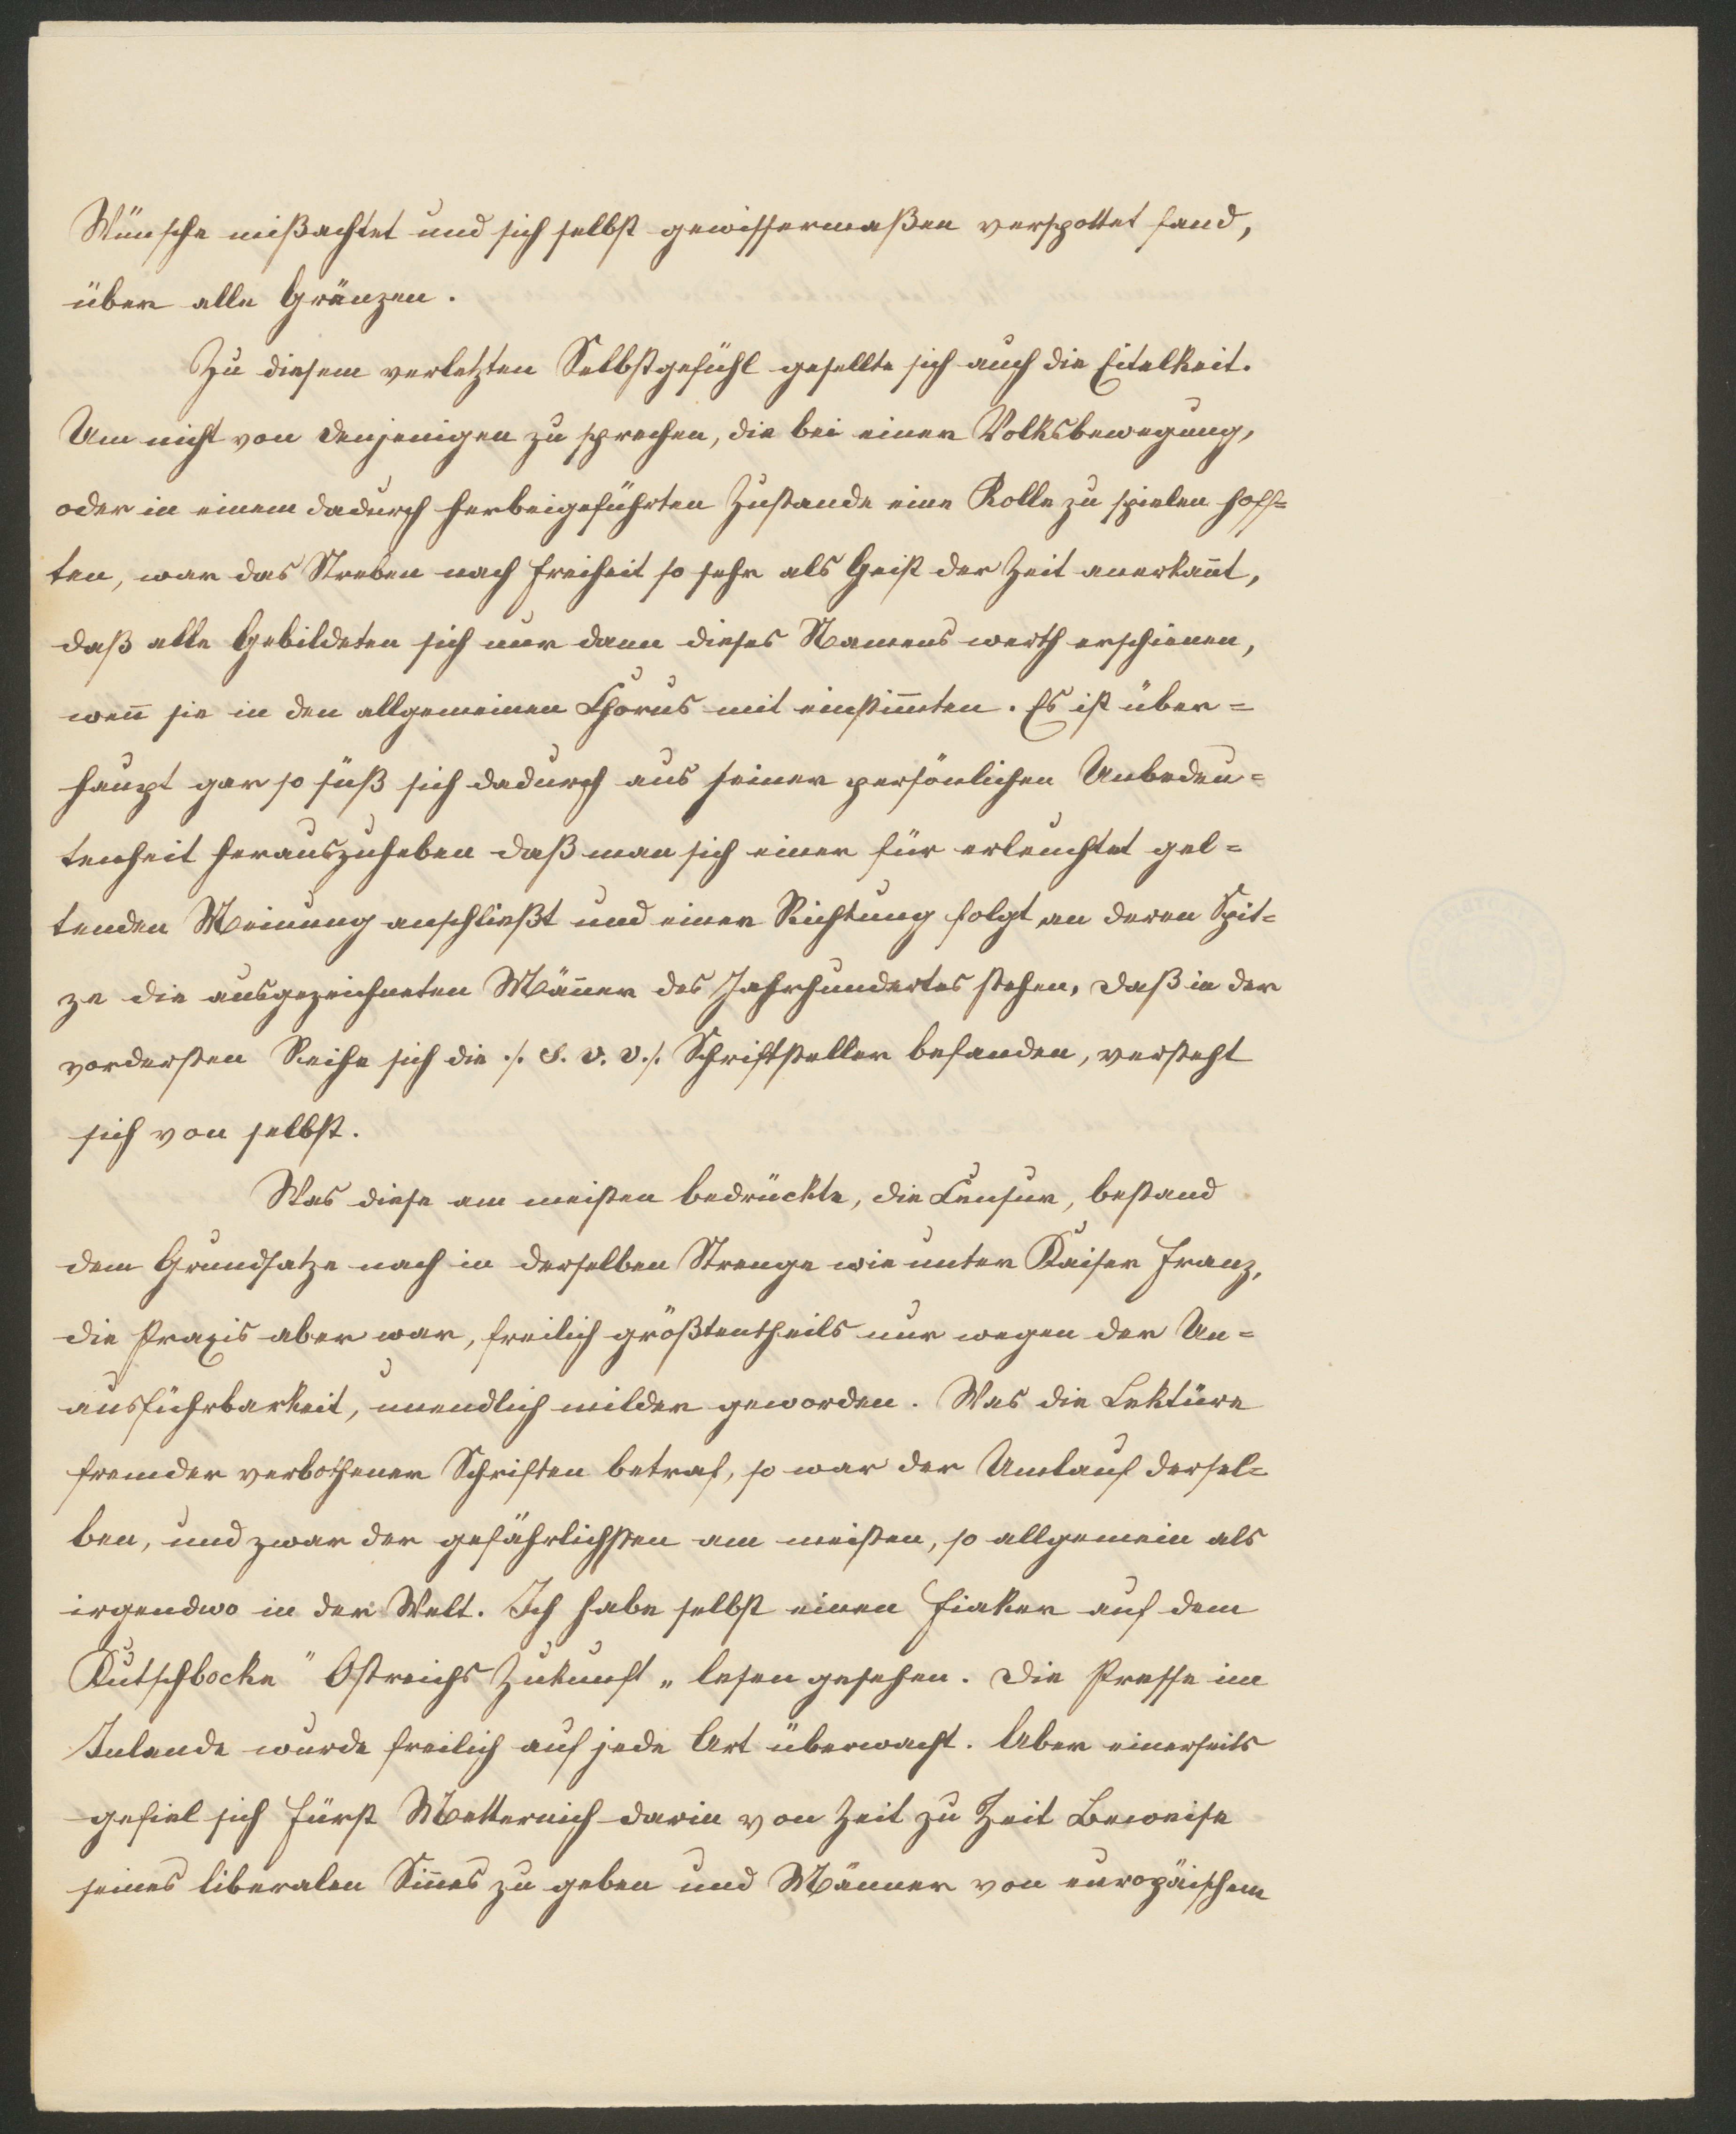 Wünsche mißachtet und sich selbst gewissermaßen verspottet fand,
über alle Gränzen.
Zu diesem verletzten Selbstgefühl gesellte sich auch die Eitelkeit.
Um nicht von denjenigen zu sprechen, die bei einer Volksbewegung,
oder in einem dadurch herbeigeführten Zustande eine Rolle zu spielen hoff=
ten, war das Streben nach Freiheit so sehr als Geist der Zeit anerkan̄t,
daß alle Gebildeten sich nur dann dieses Namens werth erschienen,
wen̄ sie in den allgemeinen Chorus mit einstim̄ten. Es ist über=
haupt gar so süß sich dadurch aus seiner persönlichen Unbedeu=
tenheit herauszuheben daß man sich einer für erleuchtet gel=
tenden Meinung anschließt und einer Richtung folgt an deren Spit=
ze die ausgezeichneten Män̄er des Jahrhundertes stehen, daß in der
vordersten Reihe sich die ./. S. v. v. ./. Schriftsteller befanden, versteht
sich von selbst.
Was diese am meisten bedrückte, die Censur, bestand
dem Grundsatze nach in derselben Strenge wie unter Kaiser Franz,
die Praxis aber war, freilich größtentheils nur wegen der Un=
ausführbarkeit, unendlich milder geworden. Was die Lektüre
fremder verbothener Schriften betraf, so war der Umlauf dersel=
ben, und zwar der gefährlichsten am meisten, so allgemein als
irgendwo in der Welt. Ich habe selbst einen Fiaker auf dem
Kutschbocke "Östreichs Zukunft„ lesen gesehen. Die Presse im
Inlande wurde freilich auf jede Art überwacht. Aber einerseits
gefiel sich Fürst Metternich darin von Zeit zu Zeit Beweise
seines liberalen Sin̄es zu geben und Männer von europäischem